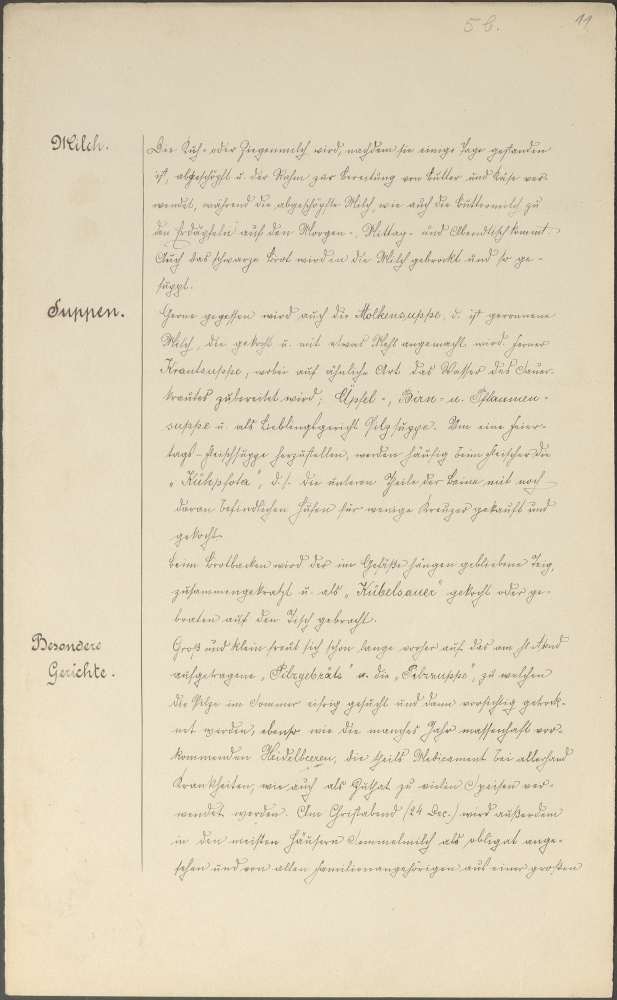 5 b.
11
Milch.
Die Kuh- oder Ziegenmilch wird, nachdem sie einige Tage gestanden
ist, abgeschöpft u. der Rahm zur Bereitung von Butter und Käse ver-
wendet, während die abgeschöpfte Milch, wie auch die Buttermilch zu
den Erdäpfeln auf den Morgen-, Mittag- und Abendtisch kommt.
Auch das schwarze Brot wird in die Milch gebrockt und so ge-
suppt.
Suppen.
Gerne gegessen wird auch die Molkensuppe, d. ist geronnene
Milch, die gekocht u. mit etwas Mehl angemacht wird, ferner
Krautsuppe, wobei auf ähnliche Art das Wasser des Sauer-
krautes zubereitet wird; Äpfel-, Birn- u. Pflaumen-
suppe u. als Lieblingsgericht Pilzsuppe. Um eine Feier-
tags-Fleischsuppe herzustellen, werden häufig beim Fleischer die
"Kühpfota", d. s. die unteren Theile der Beine mit noch
daran befindlichen Hufen für wenige Kreuzer gekauft und
gekocht.
Beim Brotbacken wird der im Gefäße hängen gebliebene Teig,
zusammengekratzt u. als "Kübelsauer" gekocht oder ge-
braten auf den Tisch gebracht.
Besondere
Gerichte.
Groß und klein freut sich schon lange vorher auf das am hl. Abend
aufgetragene "Pilzgebräts" u. die "Pilzsuppe", zu welchen
die Pilze im Sommer eifrig gesucht und dann vorsichtig getrock-
net werden, ebenso wie die manches Jahr massenhaft vor-
kommenden Heidelbeeren, die theils Medicament bei allerhand
Krankheiten, wie auch als Zuthat zu vielen Speisen ver-
wendet werden. Am Christabend (24 Dec.) wird außerdem
in den meisten Häusern Semmelmilch als obligat ange-
sehen und von allen Familienangehörigen aus einer großen